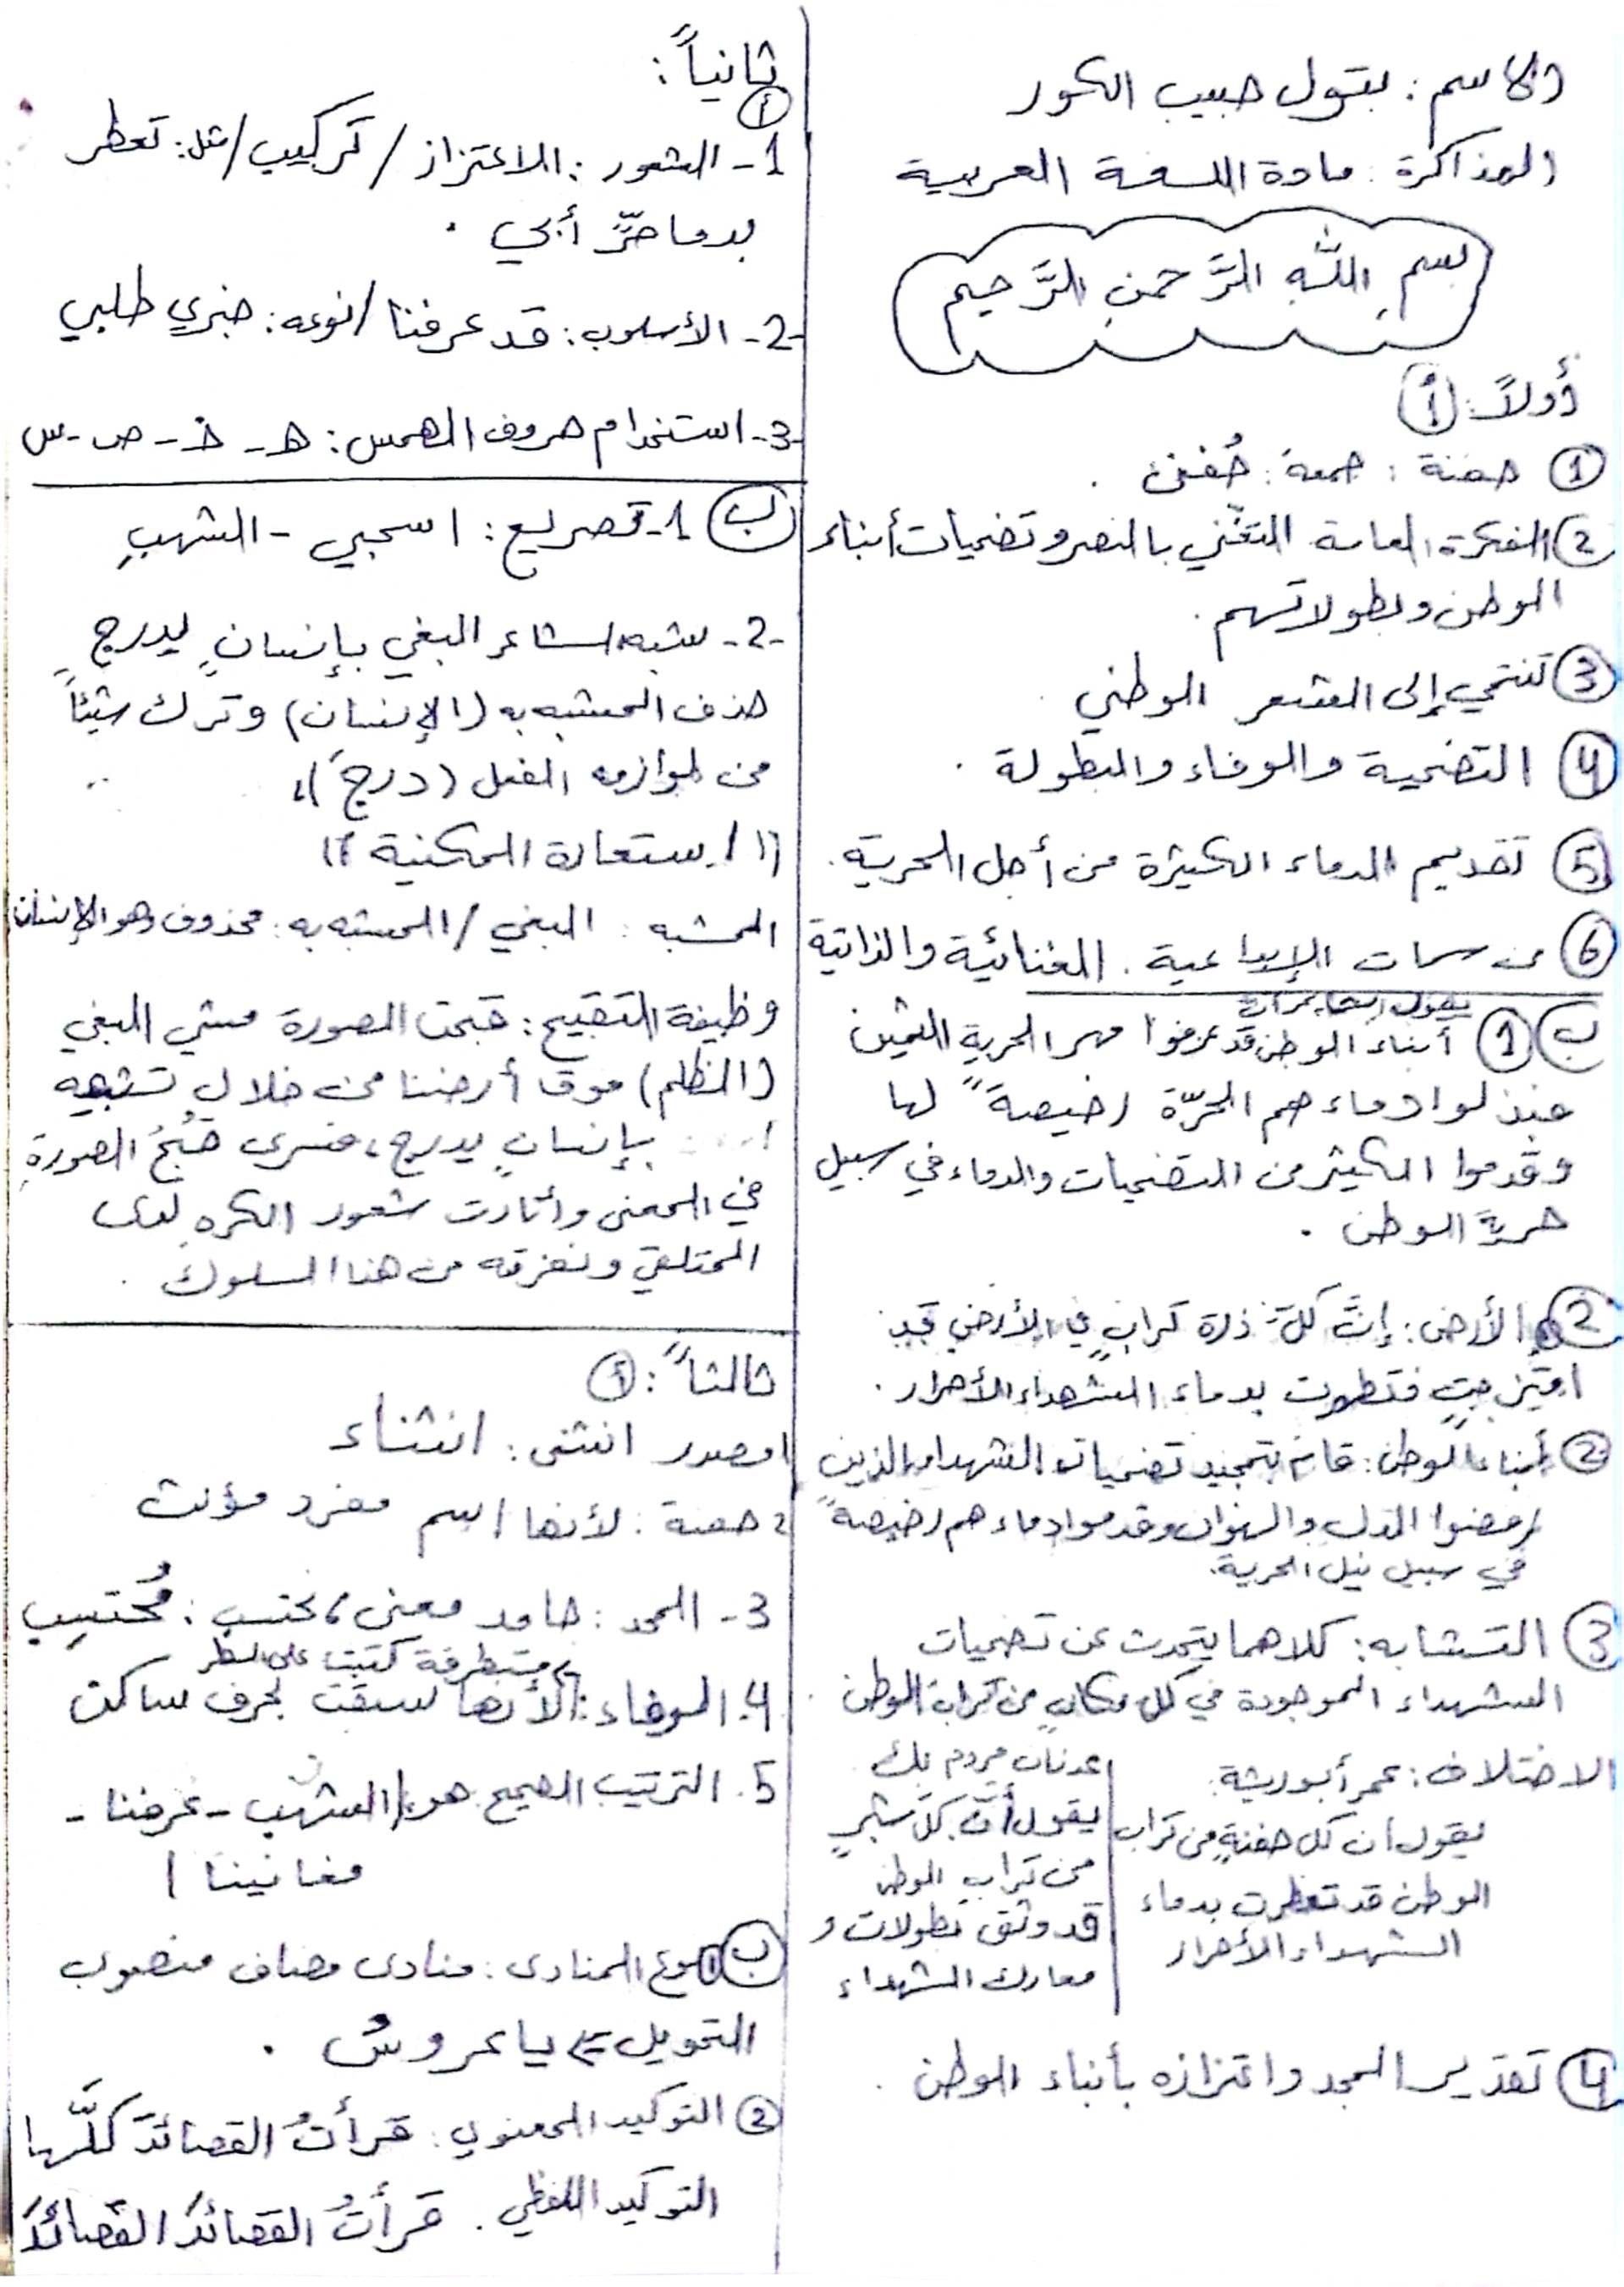 الاسم: بتول حبيب الكور
المذاكرة: مادة اللغة العربية
بسم الله الرَّحمن الرَّحيم
أولاً: أ
1 حفنة: جمعه: حُفن.
2 الفكرة العامة التغنّي بالنصر وتضحيات أبناء
الوطن وبطولاتهم.
3 تنتمي إلى الشعر الوطني.
4 التضحية والوفاء والبطولة.
5 تقديم الدماء الكثيرة من أجل الحرية.
6 من سمات الإبداعية. الغنائية والذاتية
يقول الشاعر أن
ب 1 أبناء الوطن قد عرفوا مهر الحرية الثمين
فبذلوا دماءهم الحرّة رخيصةً لها
وقدموا الكثير من التضحيات والدماء في سبيل
حرية الوطن.
2 الأرض: إنَّ كلَّ ذرة ترابٍ في الأرض قد
امتزجت فتطهرت بدماء الشهداء الأحرار.
2 أبناء الوطن: قام بتمجيد تضحيات الشهداء الذين
رفضوا الذل والهوان وقدموا دماءهم رخيصةً
في سبيل نيل الحرية.
3 التشابه: كلاهما يتحدث عن تضحيات
الشهداء الموجودة في كل مكانٍ من تراب الوطن.
الاختلاف: عمر أبو ريشة:
يقول أن كل حفنةٍ من تراب
الوطن قد تعطرت بدماء
الشهداء الأحرار
عدنان مردم بك
يقول أنّ كلّ شبرٍ
من تراب الوطن
قد وثق بطولات و
معارك الشهداء
4 تقدير المجد واعتزازه بأبناء الوطن.
ثانياً:
أ
1- الشعور: الاعتزاز / تركيب / مثل: تعطر
بدما حرٍّ أبي.
-2- الأسلوب: قد عرفنا / نوعه: خبري طلبي
-3- استخدام حروف الهمس: هـ - خ - ص - س
ب 1- تصريع: اسحبي - الشهبِ
-2- شبه الشاعر البغي بإنسانٍ يدرج
حذف المشبه به (الإنسان) وترك شيئاً
من لوازمه الفعل (درجَ)،
"استعارة المكنية"
المشبه: البغي / المشبه به: محذوف وهو الإنسان
وظيفة التقبيح: قبحت الصورة مشي البغي
(الظلم) فوق أرضنا من خلال تشبيهه
بإنسانٍ يدرج، فنرى قُبْحُ الصورة
في المعنى وأثارت شعور الكره لدى
المتلقي ونفرته من هذا السلوك.
ثالثاً: أ
1 مصدر انثنى: انثناء
2 حفنة: لأنها اسم مفرد مؤنث
3- المجد: جامد معنى، محتسب: مُحتسِب
متطرفة كتبت على السطر
4. الوفاء: لأنها سبقت بحرف ساكن
5. الترتيب الصحيح هو / الشهب - عرفنا -
مغانينا /
ب 1 نوع المنادى: منادى مضاف منصوب
التحويل => يا عروسُ.
2 التوكيد المعنوي: قرأتُ القصائدَ كلَّها
التوكيد اللفظي. قرأتُ القصائدَ القصائدَ